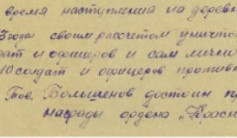 время наступления на деревн
своим рассчетом уничтож
дат и офицеров и сам лично
10 солдат и офицеров против
Тов. достоин п
награды ордена "Красн